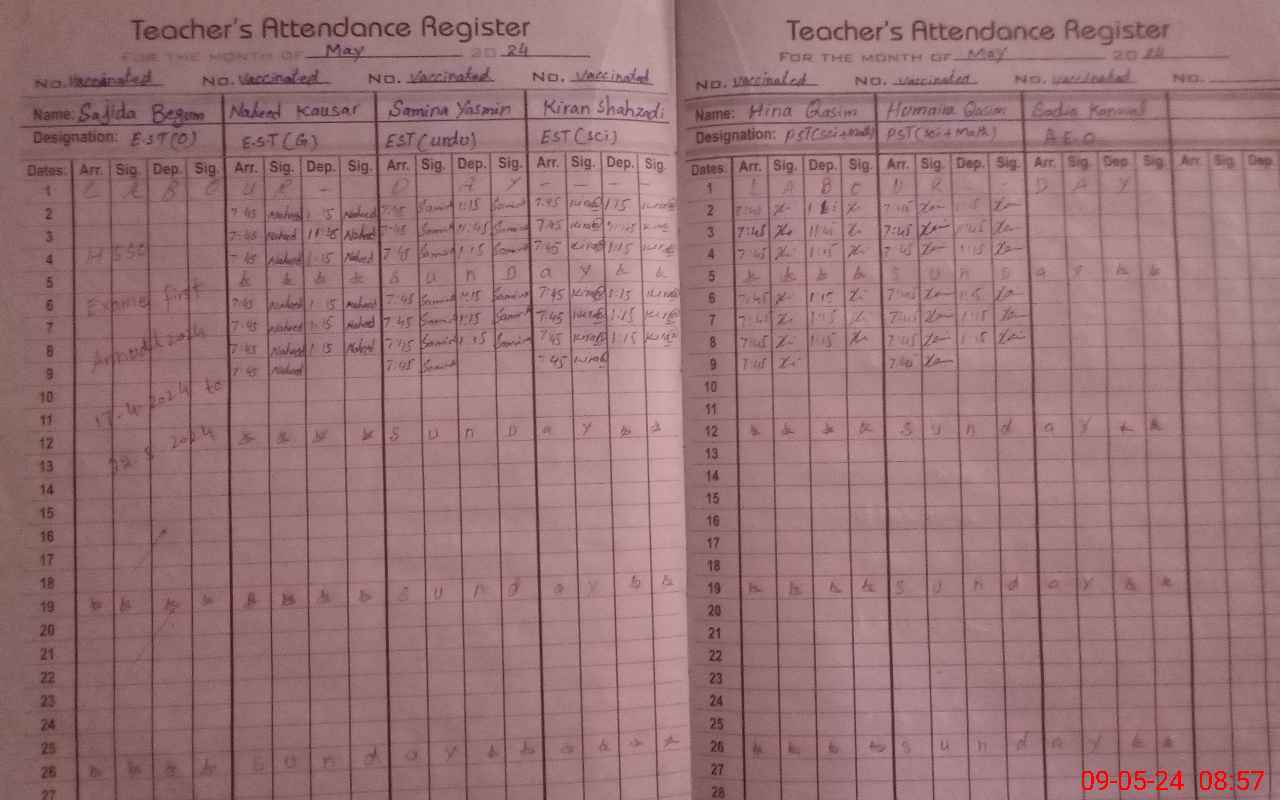 Teacher's Attendance Register
FOR THE MONTH OF May 2024
NO. vaccinated NO. vaccinated NO. vaccinated NO. vaccinated
Name: Sajida Begum Naheed Kausar Samina Yasmin Kiran Shahzadi
Designation: E.ST(O) E.S.T(G) EST(urdu) EST(sci)
Dates: Arr. Sig. Dep. Sig. Arr. Sig. Dep. Sig. Arr. Sig. Dep. Sig. Arr. Sig. Dep. Sig.
1 L A B O U R - D A Y - - - -
2 7:45 Naheed 1:15 Naheed 7:45 1:15 7:45 Kiran 1:15 Kiran
3 7:45 Naheed 11:45 Naheed 7:45 11:45 7:45 Kiran 11:45 Kiran
4 H SSC 7:45 Naheed 1:15 Naheed 7:45 1:15 7:45 Kiran 1:15 Kiran
5 S u n D a y
6 first 7:45 Naheed 1:15 Naheed 7:45 1:15 7:45 Kiran 1:15 Kiran
7 7:45 Naheed 1:15 Naheed 7:45 1:15 7:45 Kiran 1:15 Kiran
8 Annual 2024 7:45 Naheed 1:15 Naheed 7:45 1:15 7:45 Kiran 1:15 Kiran
9 7:45 Naheed 7:45 7:45 Kiran
10
11 17-4-2024 to
12 S u n D a y
13 2024
14
15
16
17
18
19 S u n d a y
20
21
22
23
24
25
26 S u n d a y
27
Teacher's Attendance Register
FOR THE MONTH OF May 2024
NO. vaccinated NO. vaccinated NO. vaccinated NO.
Name: Hina Qasim Humaira Qasim Sadia Kanwal
Designation: PST(sci+Math) PST(sci+Math) A.E.O
Dates: Arr. Sig. Dep. Sig. Arr. Sig. Dep. Sig. Arr. Sig. Dep. Sig. Arr. Sig. Dep.
1 L A B O U R - - D A Y
2 7:45 1:15 7:45 1:15
3 7:45 11:45 7:45 11:45
4 7:45 1:15 7:45 1:15
5 S u n D a y
6 7:45 1:15 7:45 1:15
7 7:45 1:15 7:45 1:15
8 7:45 1:15 7:45 1:15
9 7:45 7:45
10
11
12 S u n d a y
13
14
15
16
17
18
19 S u n d a y
20
21
22
23
24
25
26 S u n d a y
27
28
09-05-24 08:57